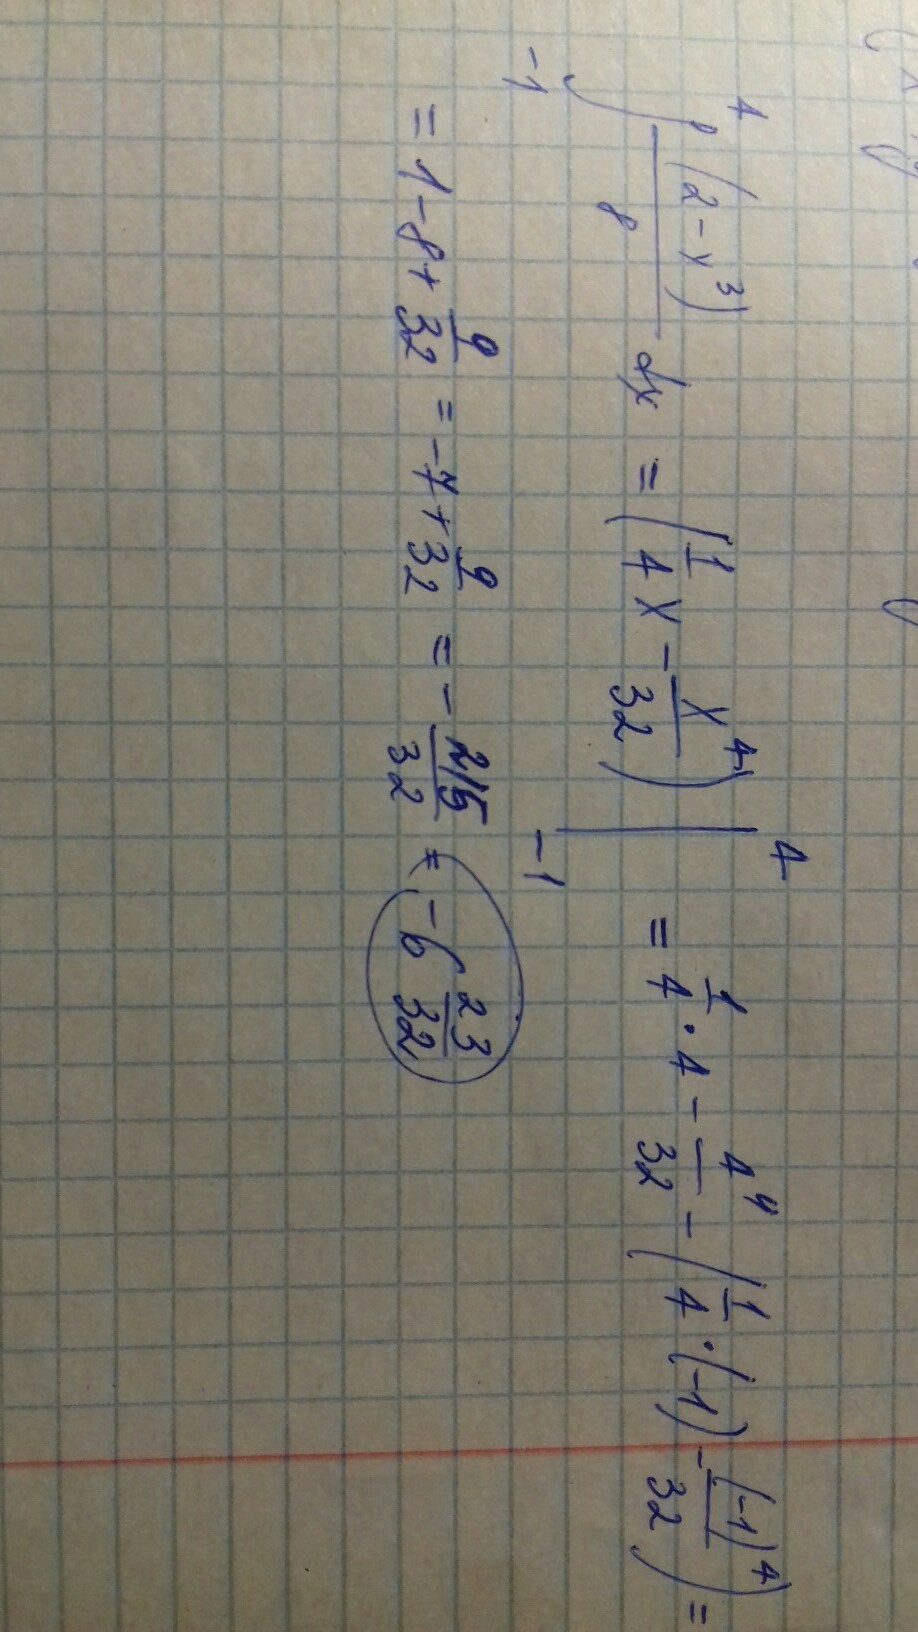 4
∫ (2-x³)/8 dx = (1/4 x - x⁴/32) |⁴₋₁ = 1/4 · 4 - 4⁴/32 - (1/4 · (-1) - (-1)⁴/32) =
-1
= 1 - 8 + 9/32 = -7 + 9/32 = - 215/32 = -6 23/32